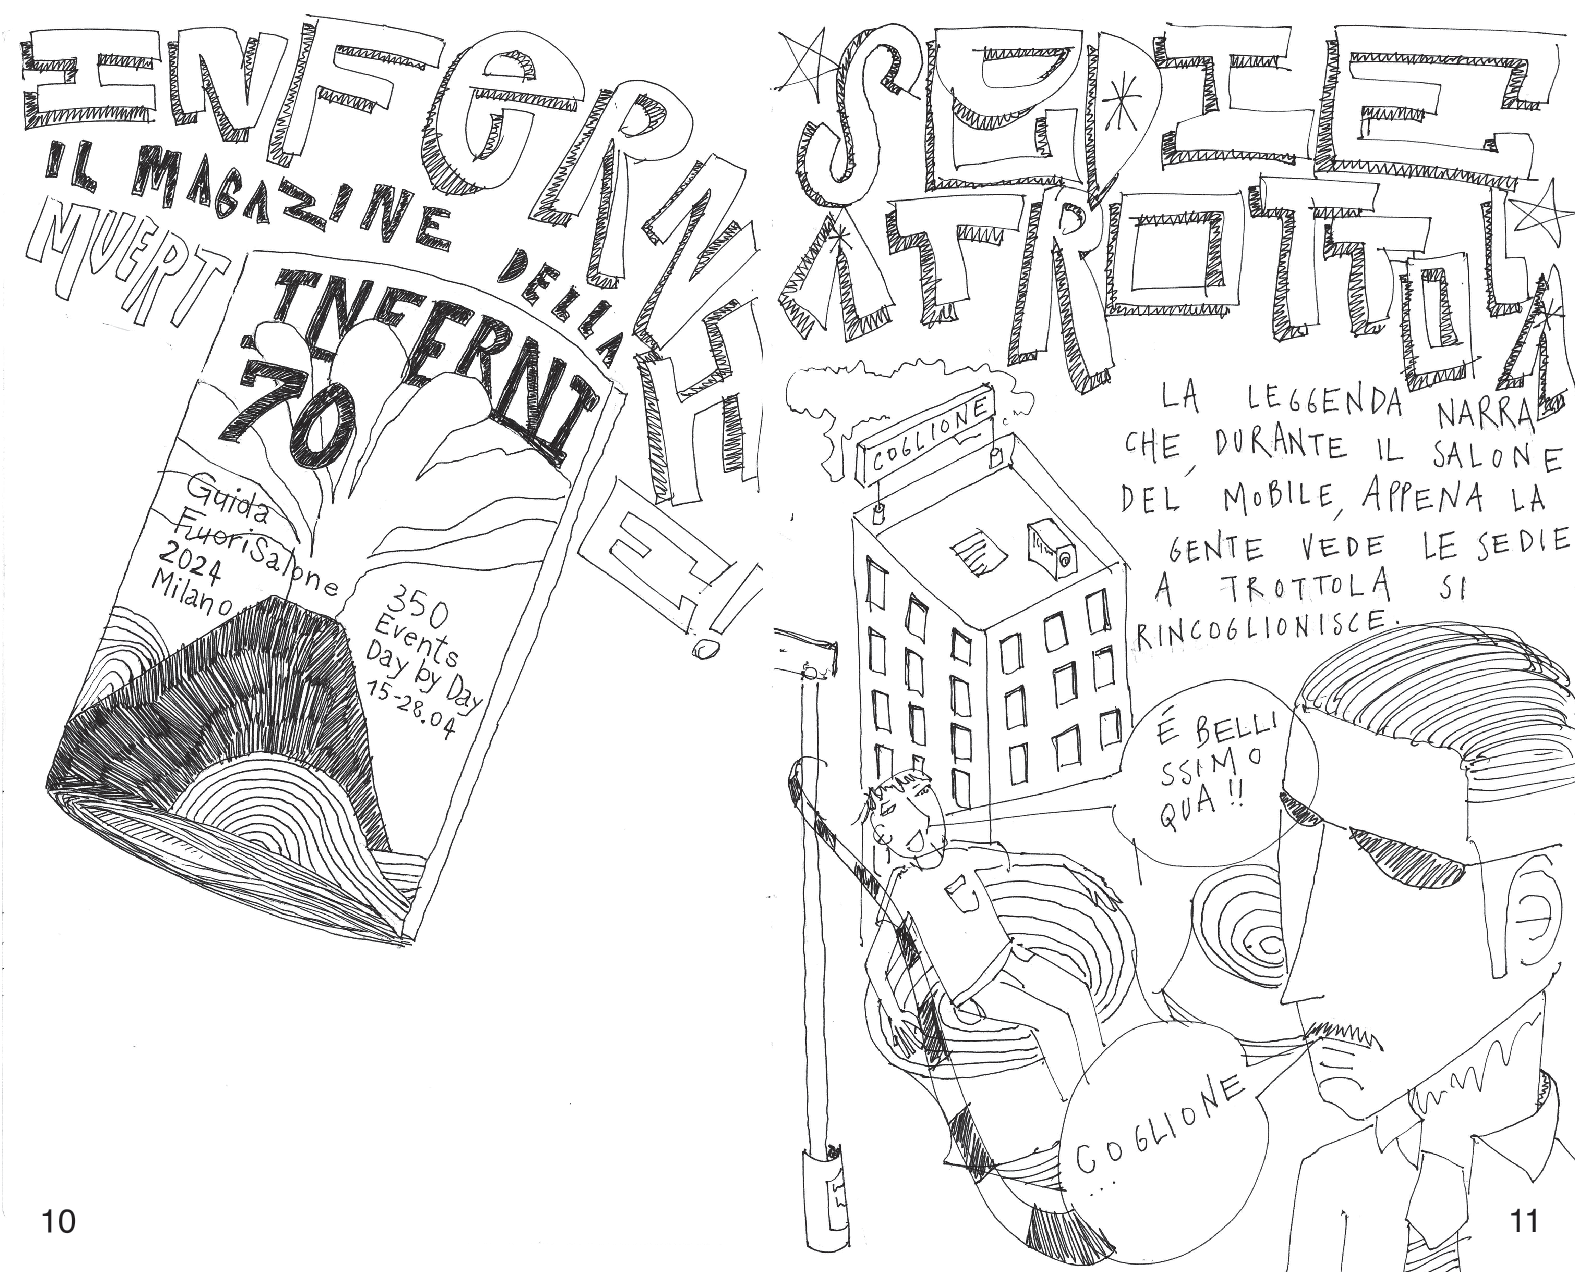 INFERNALE!
IL MAGAZINE DELLA
MUERT
INFERNI
70
Guida
FuoriSalone
2024
Milano
350
Events
Day by Day
15-28.04
10
SEDIE
A TROTTOLA
LA LEGGENDA NARRA
CHE, DURANTE IL SALONE
DEL MOBILE, APPENA LA
GENTE VEDE LE SEDIE
A TROTTOLA SI
RINCOGLIONISCE.
COGLIONE
É BELLI
SSIMO
QUA!!
COGLIONE
...
11